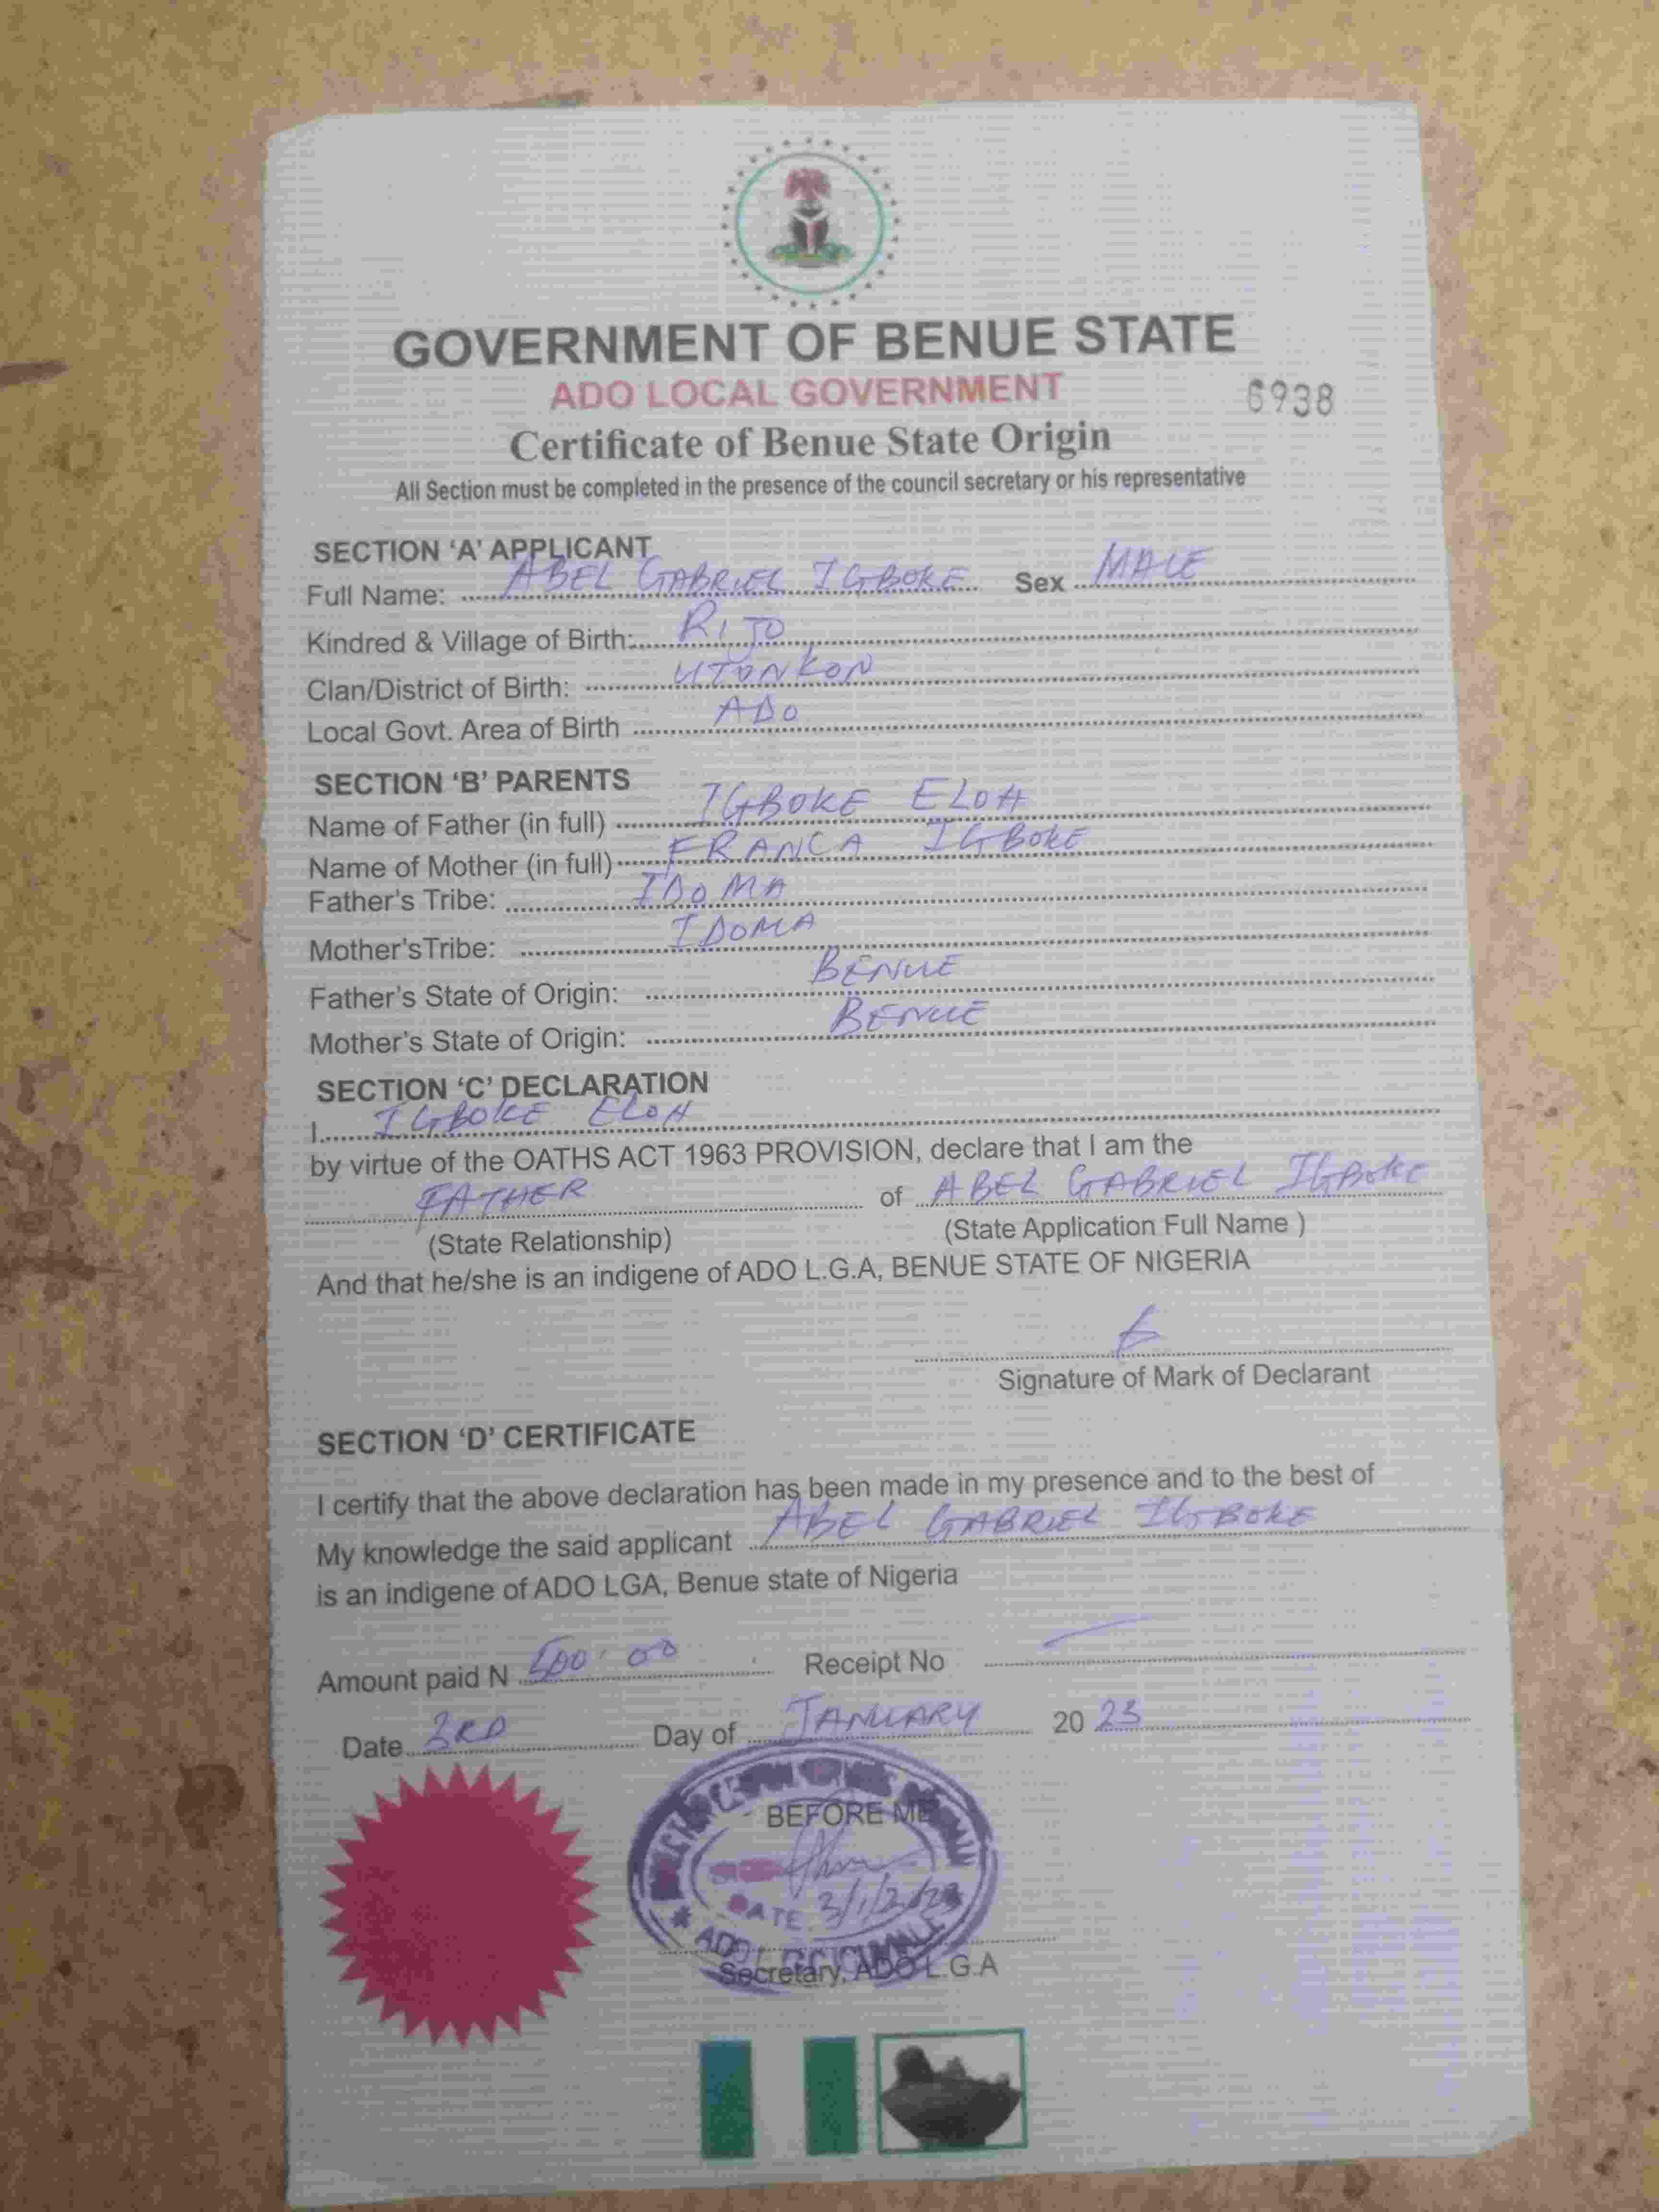 GOVERNMENT OF BENUE STATE
ADO LOCAL GOVERNMENT
6938
Certificate of Benue State Origin
All Section must be completed in the presence of the council secretary or his representative
SECTION ‘A’ APPLICANT
Full Name: ABEL GABRIEL IGBOKE Sex MALE
Kindred & Village of Birth: RIJO
Clan/District of Birth: UTONKON
Local Govt. Area of Birth ADO
SECTION ‘B’ PARENTS
Name of Father (in full) IGBOKE ELOH
Name of Mother (in full) FRANCA IGBOKE
Father's Tribe: IDOMA
Mother'sTribe: IDOMA
Father's State of Origin: BENUE
Mother's State of Origin: BENUE
SECTION ‘C’ DECLARATION
I IGBOKE ELOH
by virtue of the OATHS ACT 1963 PROVISION, declare that I am the
FATHER of ABEL GABRIEL IGBOKE
(State Relationship) (State Application Full Name )
And that he/she is an indigene of ADO L.G.A, BENUE STATE OF NIGERIA
Signature of Mark of Declarant
SECTION ‘D’ CERTIFICATE
I certify that the above declaration has been made in my presence and to the best of
My knowledge the said applicant ABEL GABRIEL IGBOKE
is an indigene of ADO LGA, Benue state of Nigeria
Amount paid N 500.00 Receipt No
Date 3RD Day of JANUARY 20 23
BEFORE ME
DATE 3/1/2023
ADO
Secretary, ADO L.G.A